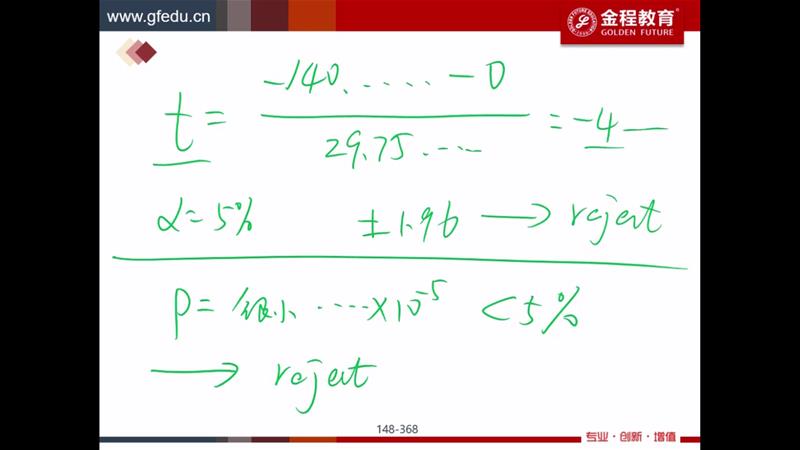 www.gfedu.cn
金程教育
GOLDEN FUTURE
t = -140. ..... - 0 / 29.75 ..... = -4 —
α = 5% ±1.96 → reject
P = 很小 ..... ×10⁻⁵ < 5%
→ reject
148-368
专业·创新·增值